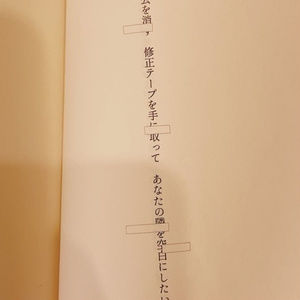 ムを消す 修正テープを手に取って あなたの隣を空白にしたい